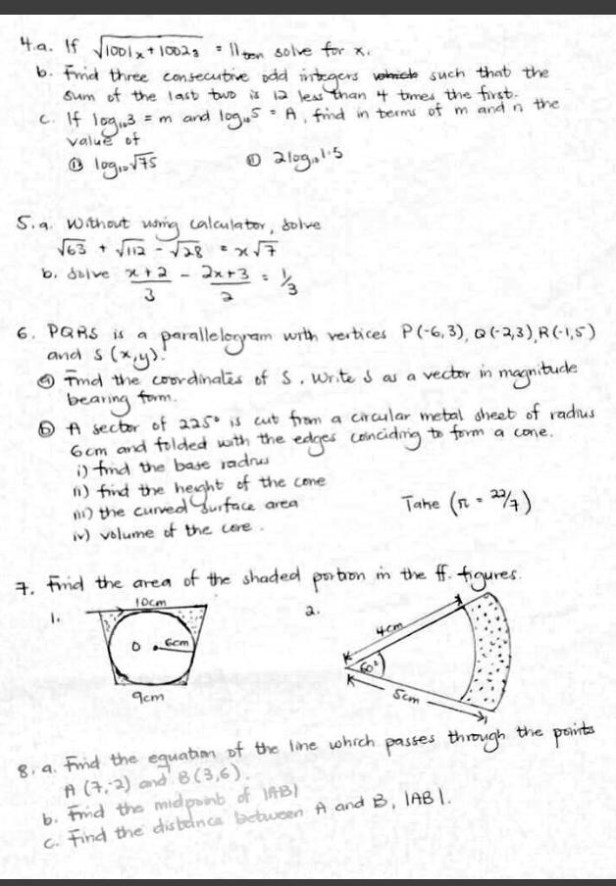 4.a. If √1001ₓ + 1002₃ = 11ten solve for x.
b. Find three consecutive odd integers such that the
sum of the last two is 12 less than 4 times the first.
c. If log₁₀3 = m and log₁₀5 = A, find in terms of m and n the
value of
① log₁₀√75 ② 2log₁₀1.5
5.a. Without using calculator, solve
√63 + √112 - √28 = x√7
b. Solve (x+2)/3 - (2x+3)/2 = 1/3
6. PQRS is a parallelogram with vertices P(-6,3), Q(-2,3), R(-1,5)
and S(x,y).
ⓐ Find the coordinates of S. Write S as a vector in magnitude
bearing form.
ⓑ A sector of 225° is cut from a circular metal sheet of radius
6cm and folded with the edges coinciding to form a cone.
i) find the base radius
ii) find the height of the cone
iii) the curved surface area Take (π = 22/7)
iv) volume of the cone.
7. Find the area of the shaded portion in the ff. figures.
1. 10cm
O 6cm
9cm
2.
4cm
60°
5cm
8.a. Find the equation of the line which passes through the points
A(7,-2) and B(3,6).
b. Find the midpoint of |AB|
c. Find the distance between A and B, |AB|.